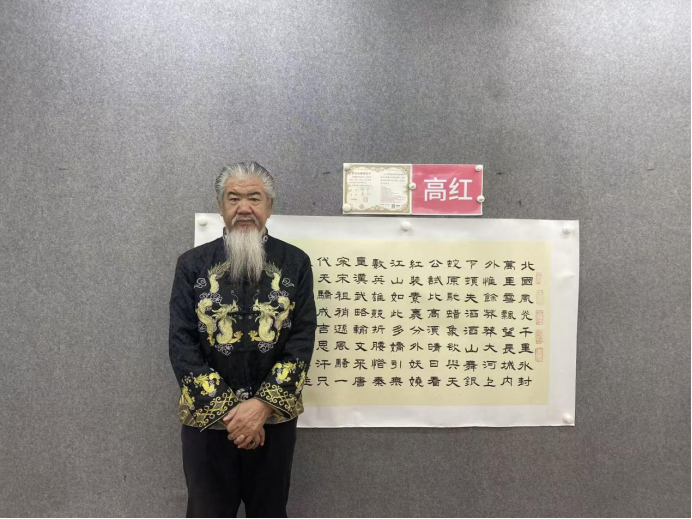 高红
北國風光千里冰封
萬里雪飄望長城内
外惟餘莽莽大河上
下頓失滔滔山舞銀
蛇原馳蠟象欲與天
公試比高須晴日看
紅裝素裹分外妖嬈
江山如此多嬌引無
數英雄競折腰惜秦
皇漢武略輸文采唐
宗宋祖稍遜風騷一
代天驕成吉思汗只